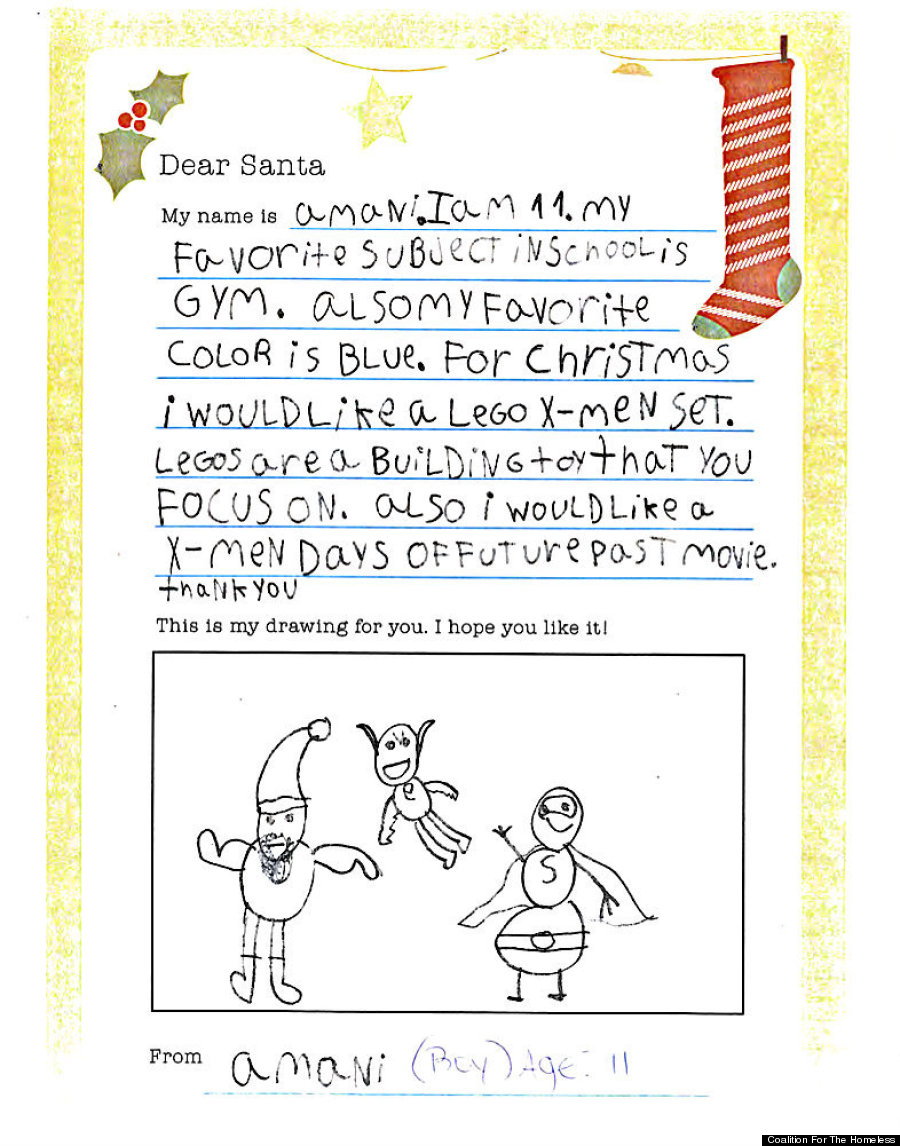 Dear Santa
My name is amani. I am 11. my
Favorite SUBJECT iN School is
GYM. aLSO MY Favorite
COLOR iS BLUe. For ChriSTmas
i WOULD Like a LeGO X-meN SeT.
LeGOS are a BUiLDiNG toy thaT YOU
FOCUS ON. aLSO i WOULD Like a
X-meN DaYS OF FUTUre PaST movie.
thaNk YOU
This is my drawing for you. I hope you like it!
e
S
From amaNi (Boy) Age: 11
Coalition For The Homeless